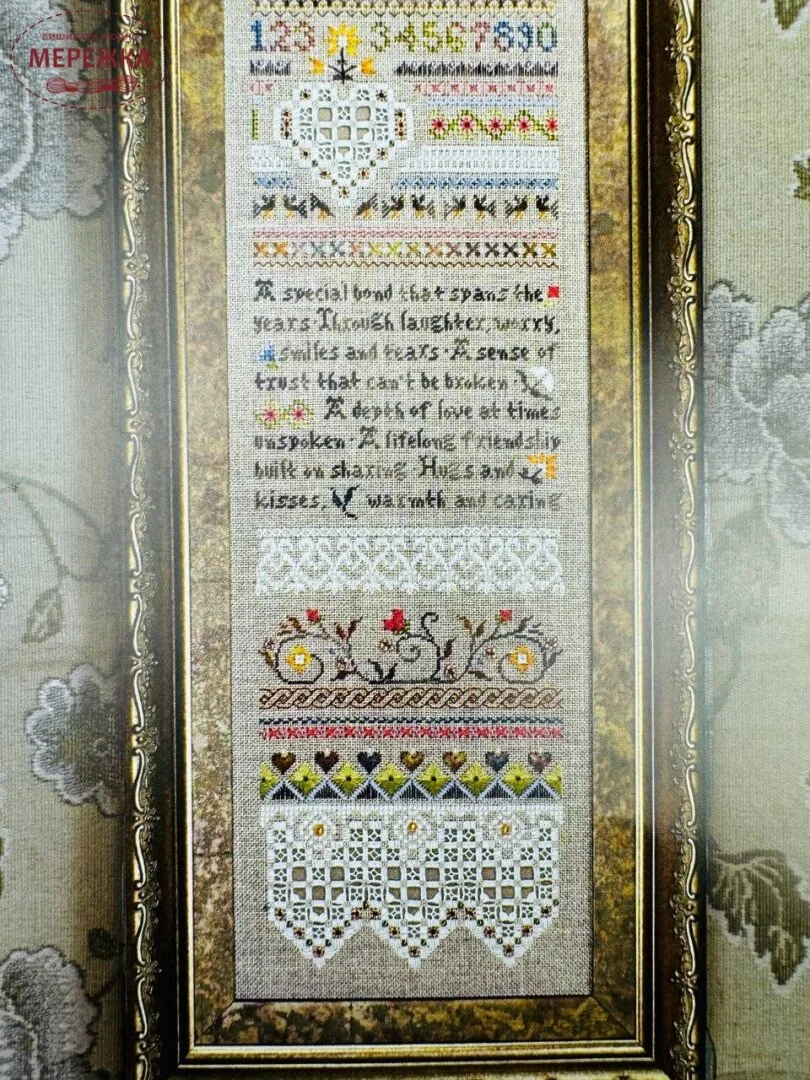 МЕРЕЖКА
1234567890
A special bond that spans the
years · Through laughter, worry,
smiles and tears · A sense of
trust that can't be broken ·
A depth of love at times
unspoken · A lifelong friendship
built on sharing · Hugs and
kisses, warmth and caring